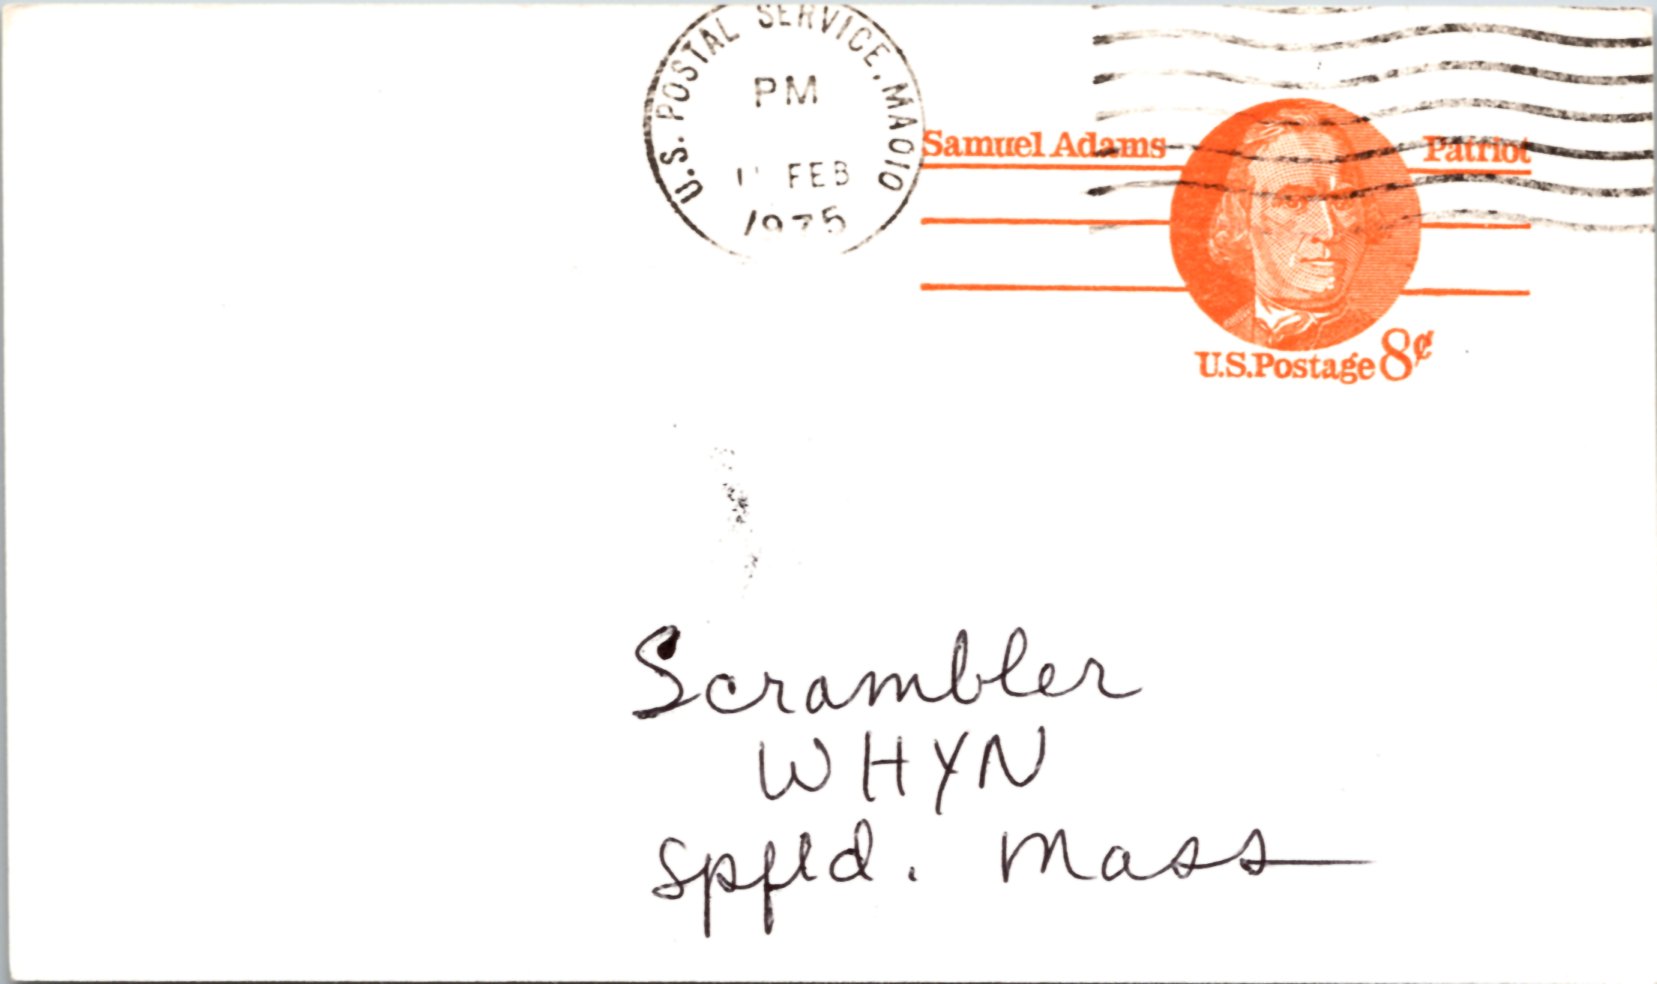 U.S. POSTAL SERVICE, MA 010
PM
FEB
1975
Samuel Adams Patriot
U.S. Postage 8¢
Scrambler
WHYN
Spfld. Mass